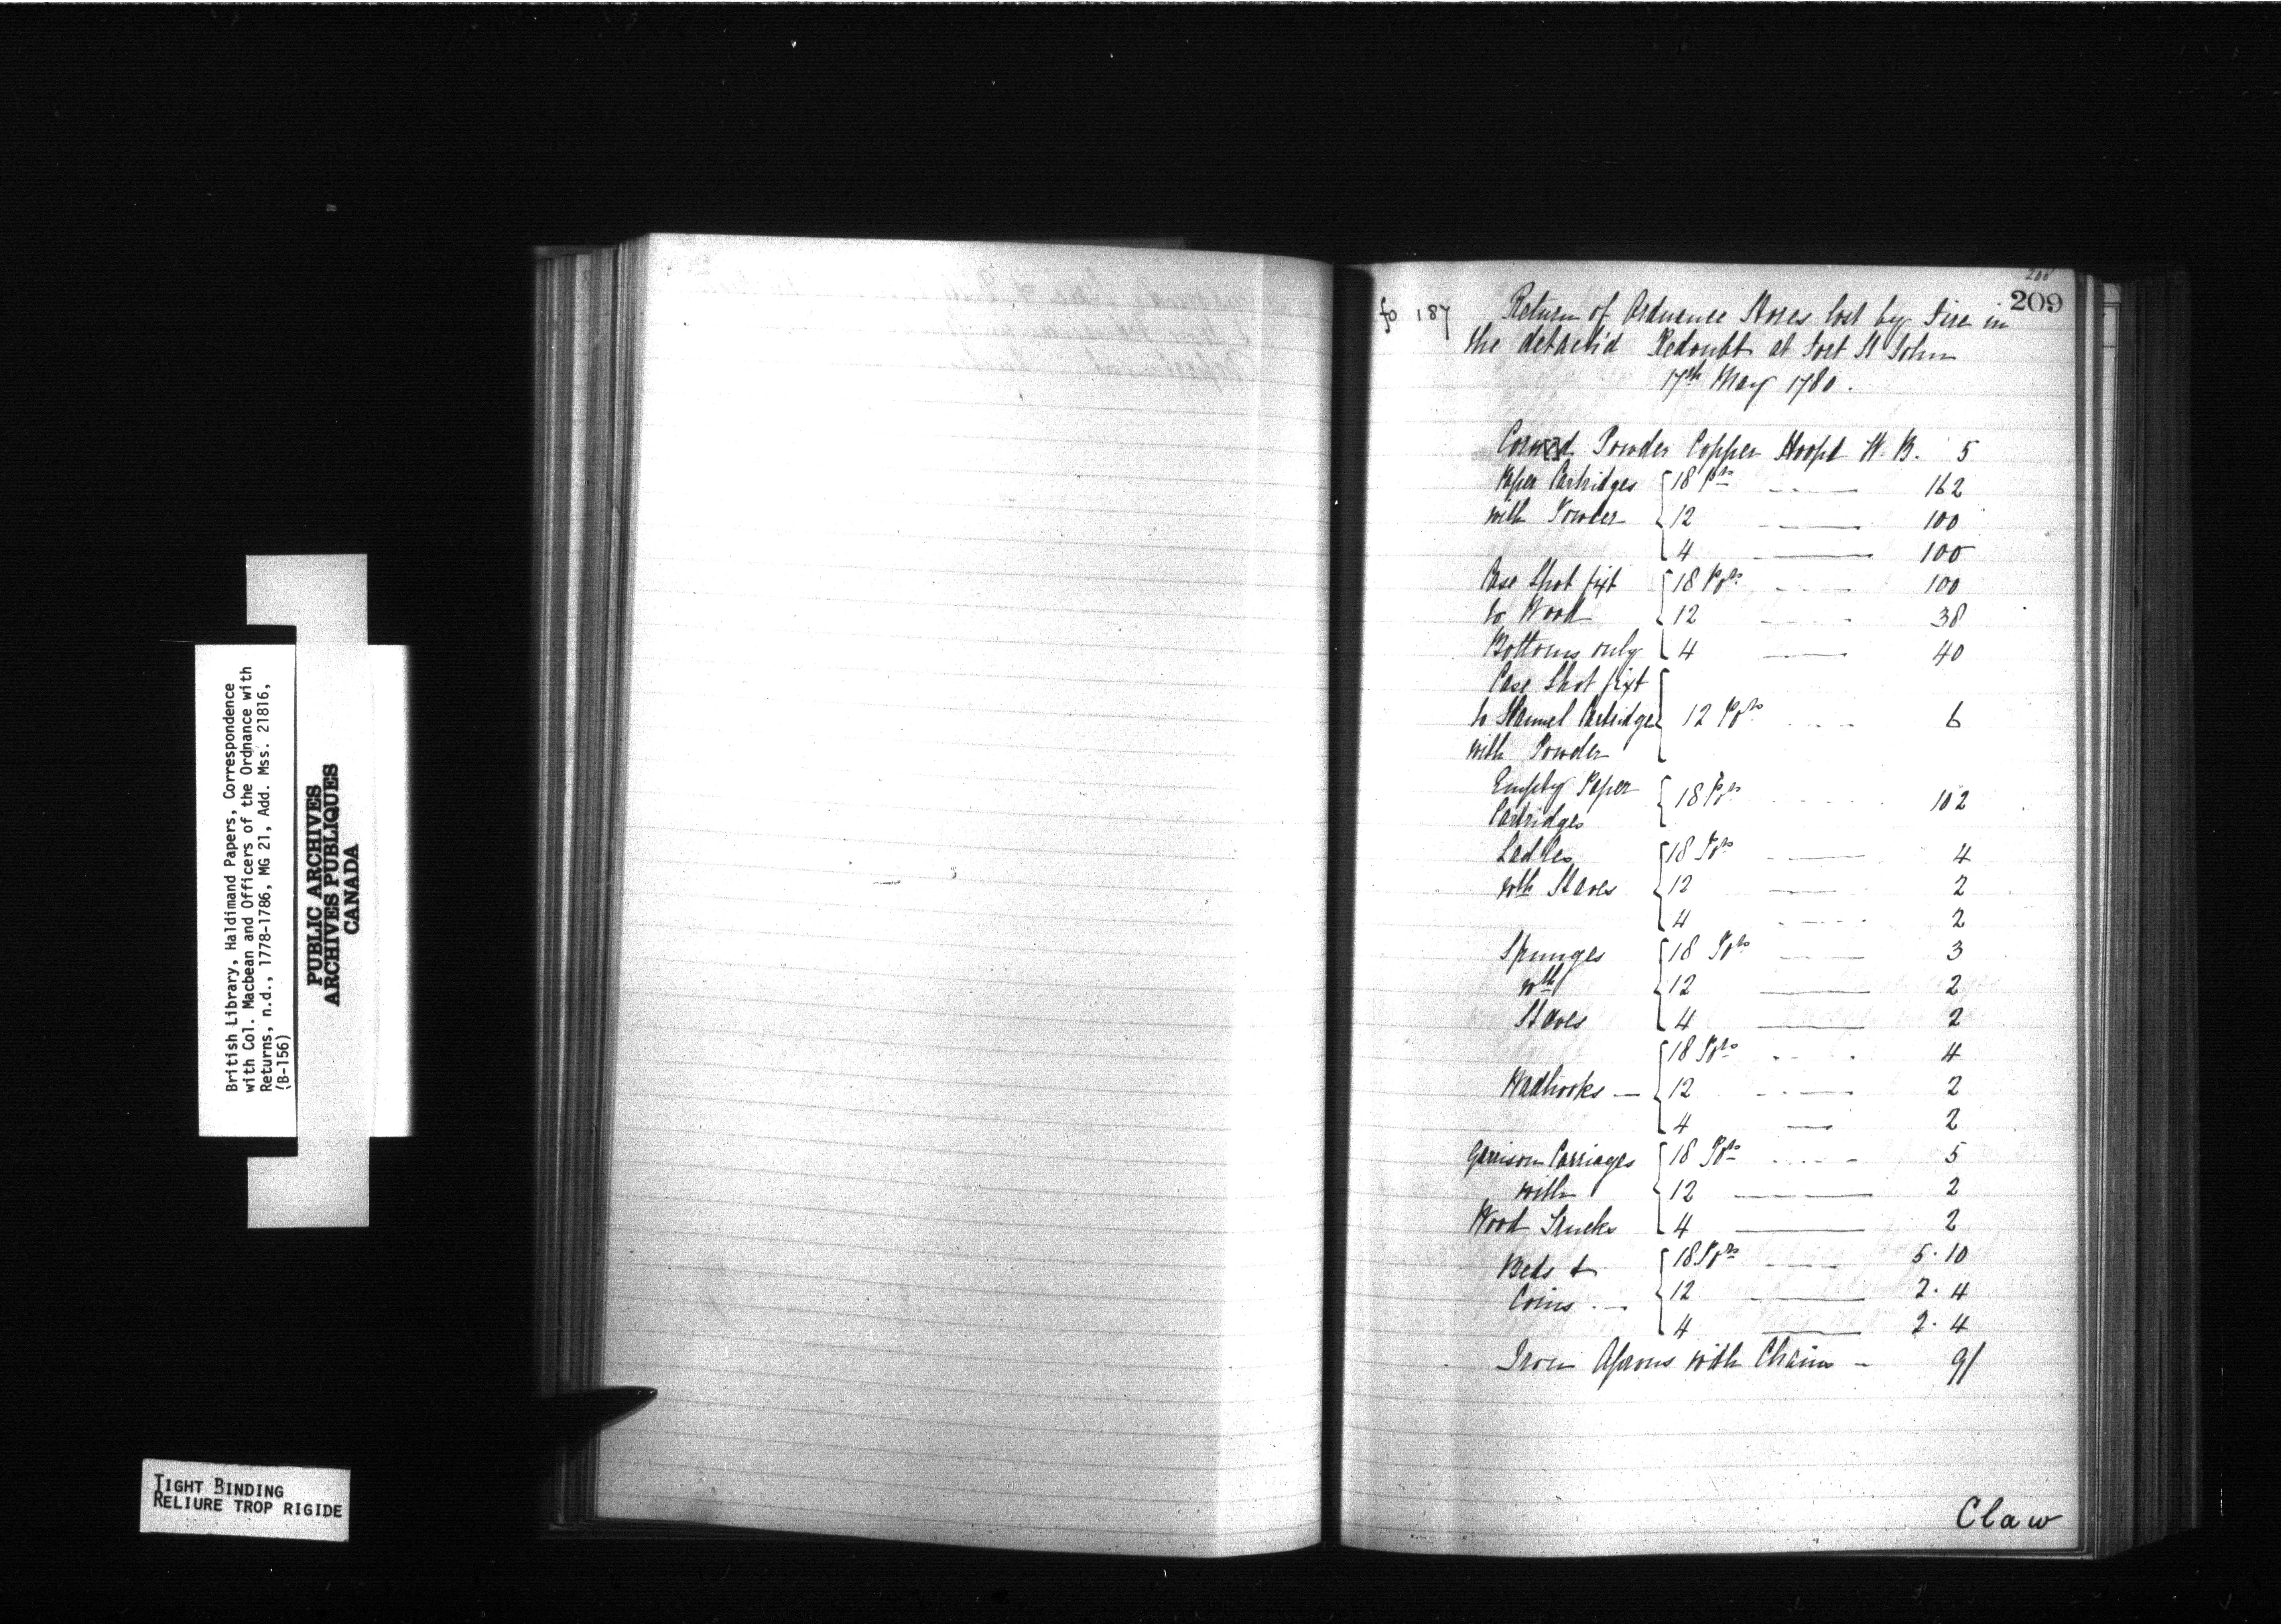 British Library, Haldimand Papers, Correspondence
with Col. Macbean and Officers of the Ordnance with
Returns, n.d., 1778-1786, MG 21, Add. Mss. 21816,
(B-156)
PUBLIC ARCHIVES
ARCHIVES PUBLIQUES
CANADA
TIGHT BINDING
RELIURE TROP RIGIDE
208
209
fo 187 Return of Ordnance Stores lost by Fire in
the detach'd Redoubt at Fort St John
17th May 1780.
Corned Powder Copper Hoop'd W. B. 5
Paper Cartridges { 18 Prs 162
with Powder { 12 100
{ 4 100
Case Shot fixt { 18 Pdrs 100
to Wood { 12 38
Bottoms only { 4 40
Case Shot fixt
to Flannel Cartridges { 12 Pdrs 6
with Powder
Empty Paper { 18 Pdrs 102
Cartridges
Ladles { 18 Pdrs 4
wth Staves { 12 2
{ 4 2
Spunges { 18 Pdrs 3
wth { 12 2
Staves { 4 2
{ 18 Pdrs 4
Wadhooks — { 12 2
{ 4 2
Garrison Carriages { 18 Pdrs 5
with { 12 2
Wood Trucks { 4 2
Beds & { 18 Pdrs 5. 10
Coins { 12 2. 4
{ 4 2. 4
Iron Aprons with Chains — 9/
Claw